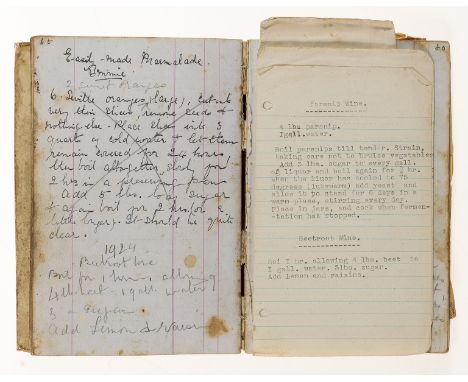 65
Easily-made Marmalade.
2 Sweet oranges
6 Seville oranges (large), cut into
very thin slices, remove seeds &
nothing else. Place slices into 3
quarts of cold water & let them
remain covered for 24 hours
then boil altogether slowly for
2 hrs in a preserving pan
Add 5 lbs. loaf sugar
& again boil for 2 hrs (or a
little longer). It should be quite
clear.
1924
Beetroot Wine
Boil for 1 hour, allowing
4 lb beet 1 gall. water
3 sugar
Add Lemon &
Parsnip Wine.
4 lbs parsnip.
1gall.water.
Boil parsnips till tender. Strain,
taking care not to bruise vegetables
Add 3 lbs. sugar to every gall.
of liquor and boil again for 2 hr.
when the liquor has cooled to 75
degrees (lukewarm) add yeast and
allow it to stand for 6 days in a
warm place, stirring every day.
Place in jars, and cork when fermen-
-tation has stopped.
Beetroot Wine.
Boil 1 hr. allowing 4 lbs. beet to
1 gall. water. 3lbs. sugar.
Add Lemon and raisins.